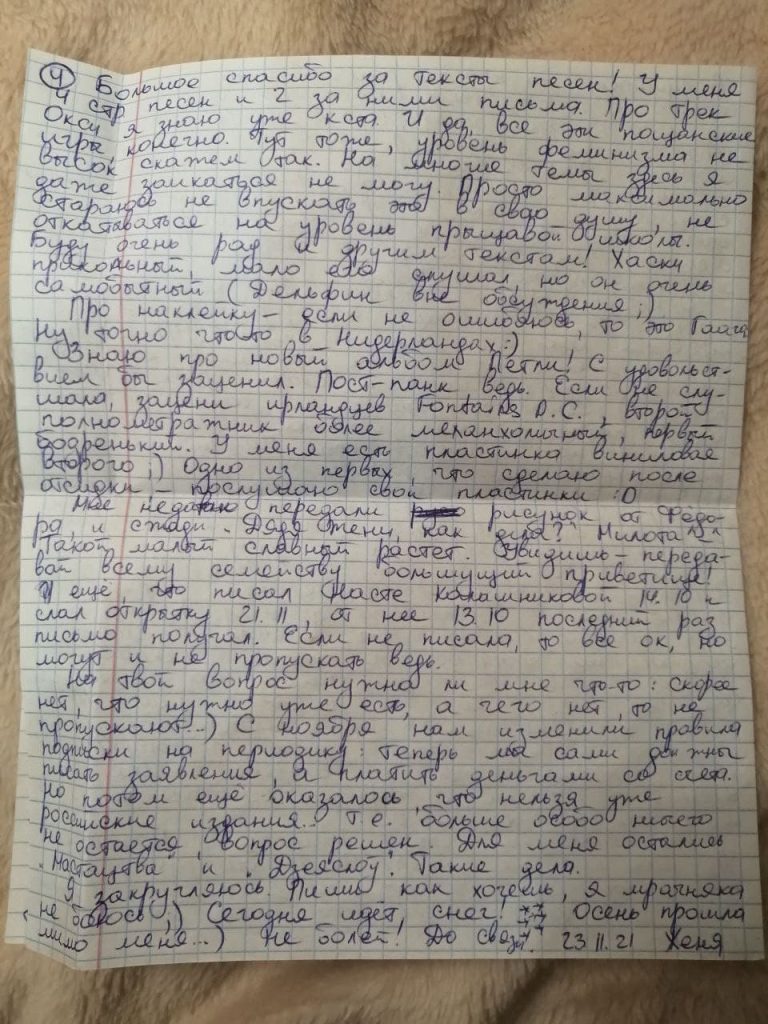 ④ Большое спасибо за тексты песен! У меня
4 стр песен и 2 за ними письма. Про трек
Окси я знаю уже кста. И да, все эти пацанские
игры, конечно. Тут тоже, уровень феминизма не
высок скажем так. На многие темы здесь я
даже заикаться не могу. Просто максимально
стараюсь не впускать это в свою душу, не
откатываться на уровень прыщавой школы.
Буду очень рад и другим текстам! Хаски
прикольный, мало его слушал, но он очень
самобытный (Дельфин вне обсуждения ;)
Про наклейку – если не ошибаюсь, то это Гаага
Ну точно что-то в Нидерландах :)
Знаю про новый альбом Петли! С удовольст-
вием бы заценил. Пост-панк ведь. Если не слу-
шала, зацени ирландцев Fontains D.C., второй
полнометражник более меланхольный, первый
бодренький. У меня есть пластинка виниловая
второго ;) Одно из первых, что сделаю после
отсидки – послушаю свои пластинки :D
Мне недавно передали рисунок от Фёдо-
ра, и сзади "Дядя Жени, как дела?" Милота ^^
Такой малый славный растет. Увидишь – переда-
вай всему семейству большущий приветище!
И ещё, что писал Насте Калашниковой 14.10 и
слал открытку 21.11, от нее 13.10 последний раз
письмо получал. Если не писала, то все ок, но
могут и не пропускать ведь.
На твой вопрос нужна ли мне что-то: скорее
нет, что нужно уже есть, а чего нет, то не
пропускают...) С ноября нам изменили правила
подписки на периодику: теперь мы сами должны
писать заявления, и платить деньгами со счета.
Но потом ещё оказалось, что нельзя уже
российские издания... Т.е. больше особо ничего
не остается, вопрос решен. Для меня остались
"Мастацтва" и "Дзеяслоў". Такие дела.
Я закругляюсь. Пиши как хочешь, я мрачняка
не боюсь ;) Сегодня идёт, снег! Осень прошла
мимо меня...) Не болей! До связи! 23.11.21 Женя